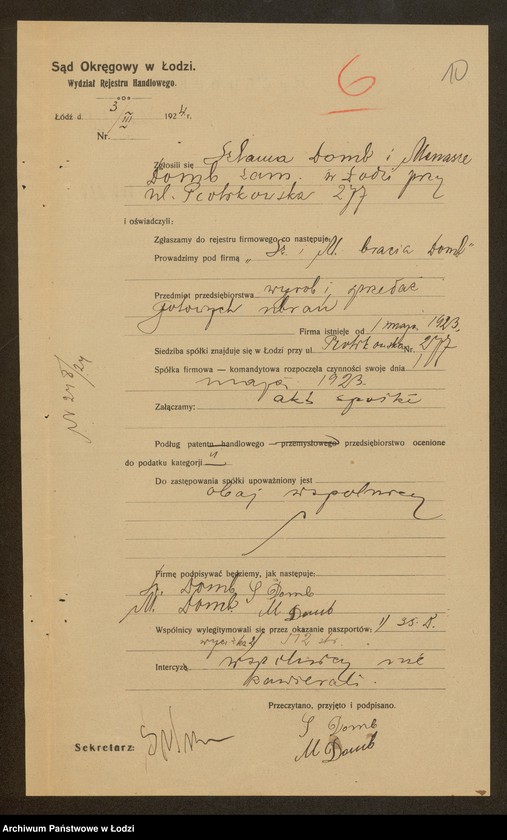 6
10
Sąd Okręgowy w Łodzi.
Wydział Rejestru Handlowego.
Łódź d. 3/III 1924 r.
Nr.
Zgłosili się Szlama Domb i Menasze
Domb zam. w Łodzi przy
ul. Piotrkowska 277
i oświadczyli:
Zgłaszamy do rejestru firmowego co następuje:
Prowadzimy pod firmą „Sz. i M. bracia Domb"
Przedmiot przedsiębiorstwa wyrób i sprzedaż
gotowych ubrań
Firma istnieje od 1 maja 1923.
Siedziba spółki znajduje się w Łodzi przy ul. Piotrkowska Nr. 277
Spółka firmowa — komandytowa rozpoczęła czynności swoje dnia 1
maja 1923.
Załączamy: akt spółki
Podług patentu handlowego — przemysłowego przedsiębiorstwo ocenione
do podatku kategorji
Do zastępowania spółki upoważniony jest
obaj wspólnicy
Firmę podpisywać będziemy, jak następuje:
Sz. Domb S Domb
M. Domb M Domb
Wspólnicy wylegitymowali się przez okazanie paszportów: 1/ 35
Intercyzę wspólnicy nie
zawierali.
Przeczytano, przyjęto i podpisano.
S Domb
M Domb
Sekretarz:
Archiwum Państwowe w Łodzi